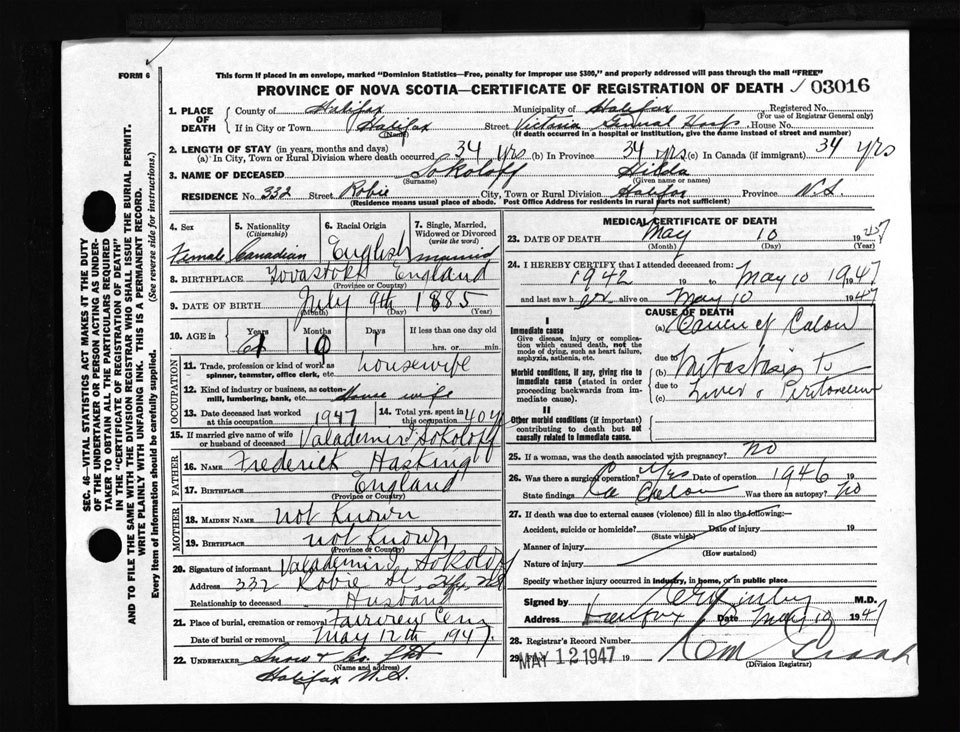 FORM 6
This form if placed in an envelope, marked "Dominion Statistics—Free, penalty for improper use $300," and properly addressed will pass through the mail "FREE"
PROVINCE OF NOVA SCOTIA—CERTIFICATE OF REGISTRATION OF DEATH 03016
1. PLACE OF DEATH County of Halifax Municipality of Halifax Registered No.
(For use of Registrar General only)
If in City or Town Halifax Street Victoria General Hosp House No.
(Name) (If death occurred in a hospital or institution, give the name instead of street and number)
2. LENGTH OF STAY (in years, months and days)
(a) In City, Town or Rural Division where death occurred 34 yrs (b) In Province 34 yrs (c) In Canada (if immigrant) 34 yrs
3. NAME OF DECEASED Sokoloff Hilda
(Surname) (Given name or names)
RESIDENCE No. 332 Street Robie City, Town or Rural Division Halifax Province N.S.
(Residence means usual place of abode. Post Office Address for residents in rural parts not sufficient)
4. Sex 5. Nationality (Citizenship) 6. Racial Origin 7. Single, Married, Widowed or Divorced (write the word)
Female Canadian English married
8. BIRTHPLACE England
(Province or Country)
9. DATE OF BIRTH July 9th 1885
(Month) (Day) (Year)
10. AGE in Years Months Days If less than one day old
61 10 1 hrs. or min.
OCCUPATION
11. Trade, profession or kind of work as spinner, teamster, office clerk, etc. housewife
12. Kind of industry or business, as cotton-mill, lumbering, bank, etc. House wife
13. Date deceased last worked at this occupation 1947 14. Total yrs. spent in this occupation 40 y
15. If married give name of wife or husband of deceased Valademir Sokoloff
FATHER
16. NAME Frederick Hasking
17. BIRTHPLACE England
(Province or Country)
MOTHER
18. MAIDEN NAME not Known
19. BIRTHPLACE not Known
(Province or Country)
20. Signature of informant Valademir Sokoloff
Address 332 Robie St, Hfx, NS
Relationship to deceased Husband
21. Place of burial, cremation or removal Fairview Cem
Date of burial or removal May 12th 1947.
22. UNDERTAKER Snow & Co. Ltd
(Name and address)
Halifax N.S.
MEDICAL CERTIFICATE OF DEATH
23. DATE OF DEATH May 10 1947
(Month) (Day) (Year)
24. I HEREBY CERTIFY that I attended deceased from:
1942 19 to May 10 1947
and last saw her alive on May 10 1947
CAUSE OF DEATH
I
Immediate cause
Give disease, injury or complication which caused death, not the mode of dying, such as heart failure, asphyxia, asthenia, etc.
(a) Cancer of Colon
due to
Morbid conditions, if any, giving rise to immediate cause (stated in order proceeding backwards from immediate cause).
(b) Metastasis to
due to
(c) Liver & Peritoneum
II
Other morbid conditions (if important) contributing to death but not causally related to immediate cause.
25. If a woman, was the death associated with pregnancy? no
26. Was there a surgical operation? Yes Date of operation 1946 19
State findings Was there an autopsy? no
27. If death was due to external causes (violence) fill in also the following:—
Accident, suicide or homicide? Date of injury 19
(State which)
Manner of injury
(How sustained)
Nature of injury
Specify whether injury occurred in industry, in home, or in public place
Signed by M.D.
Address Date May 10 1947
28. Registrar's Record Number
29. Filed MAY 12 1947 19
(Division Registrar)
SEC. 46—VITAL STATISTICS ACT MAKES IT THE DUTY
OF THE UNDERTAKER OR PERSON ACTING AS UNDER-
TAKER TO OBTAIN ALL THE PARTICULARS REQUIRED
IN THE "CERTIFICATE OF REGISTRATION OF DEATH"
AND TO FILE THE SAME WITH THE DIVISION REGISTRAR WHO SHALL ISSUE THE BURIAL PERMIT.
WRITE PLAINLY WITH UNFADING INK. THIS IS A PERMANENT RECORD.
Every item of information should be carefully supplied. (See reverse side for instructions.)